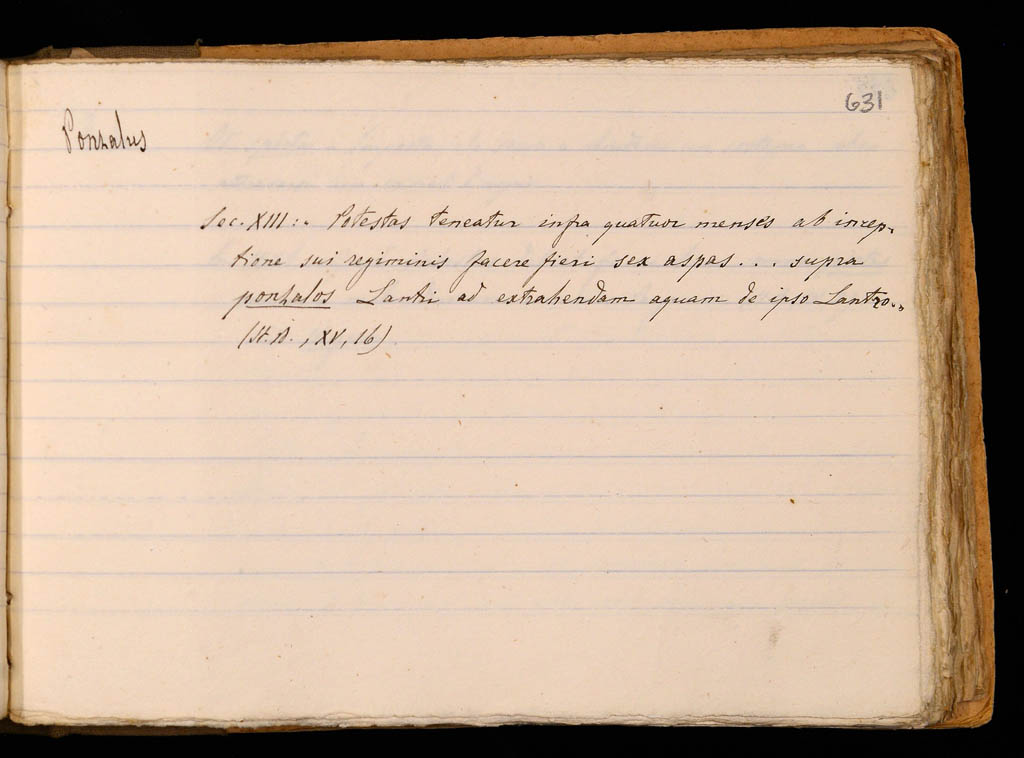 631
Ponzalus
Sec. XIII:. Potestas teneatur infra quatuor menses ab incep-
tione sui regiminis facere fieri sex aspas... supra
ponzalos Lantri ad extrahendam aquam de ipso Lantro..,
(St. B., XV, 16)